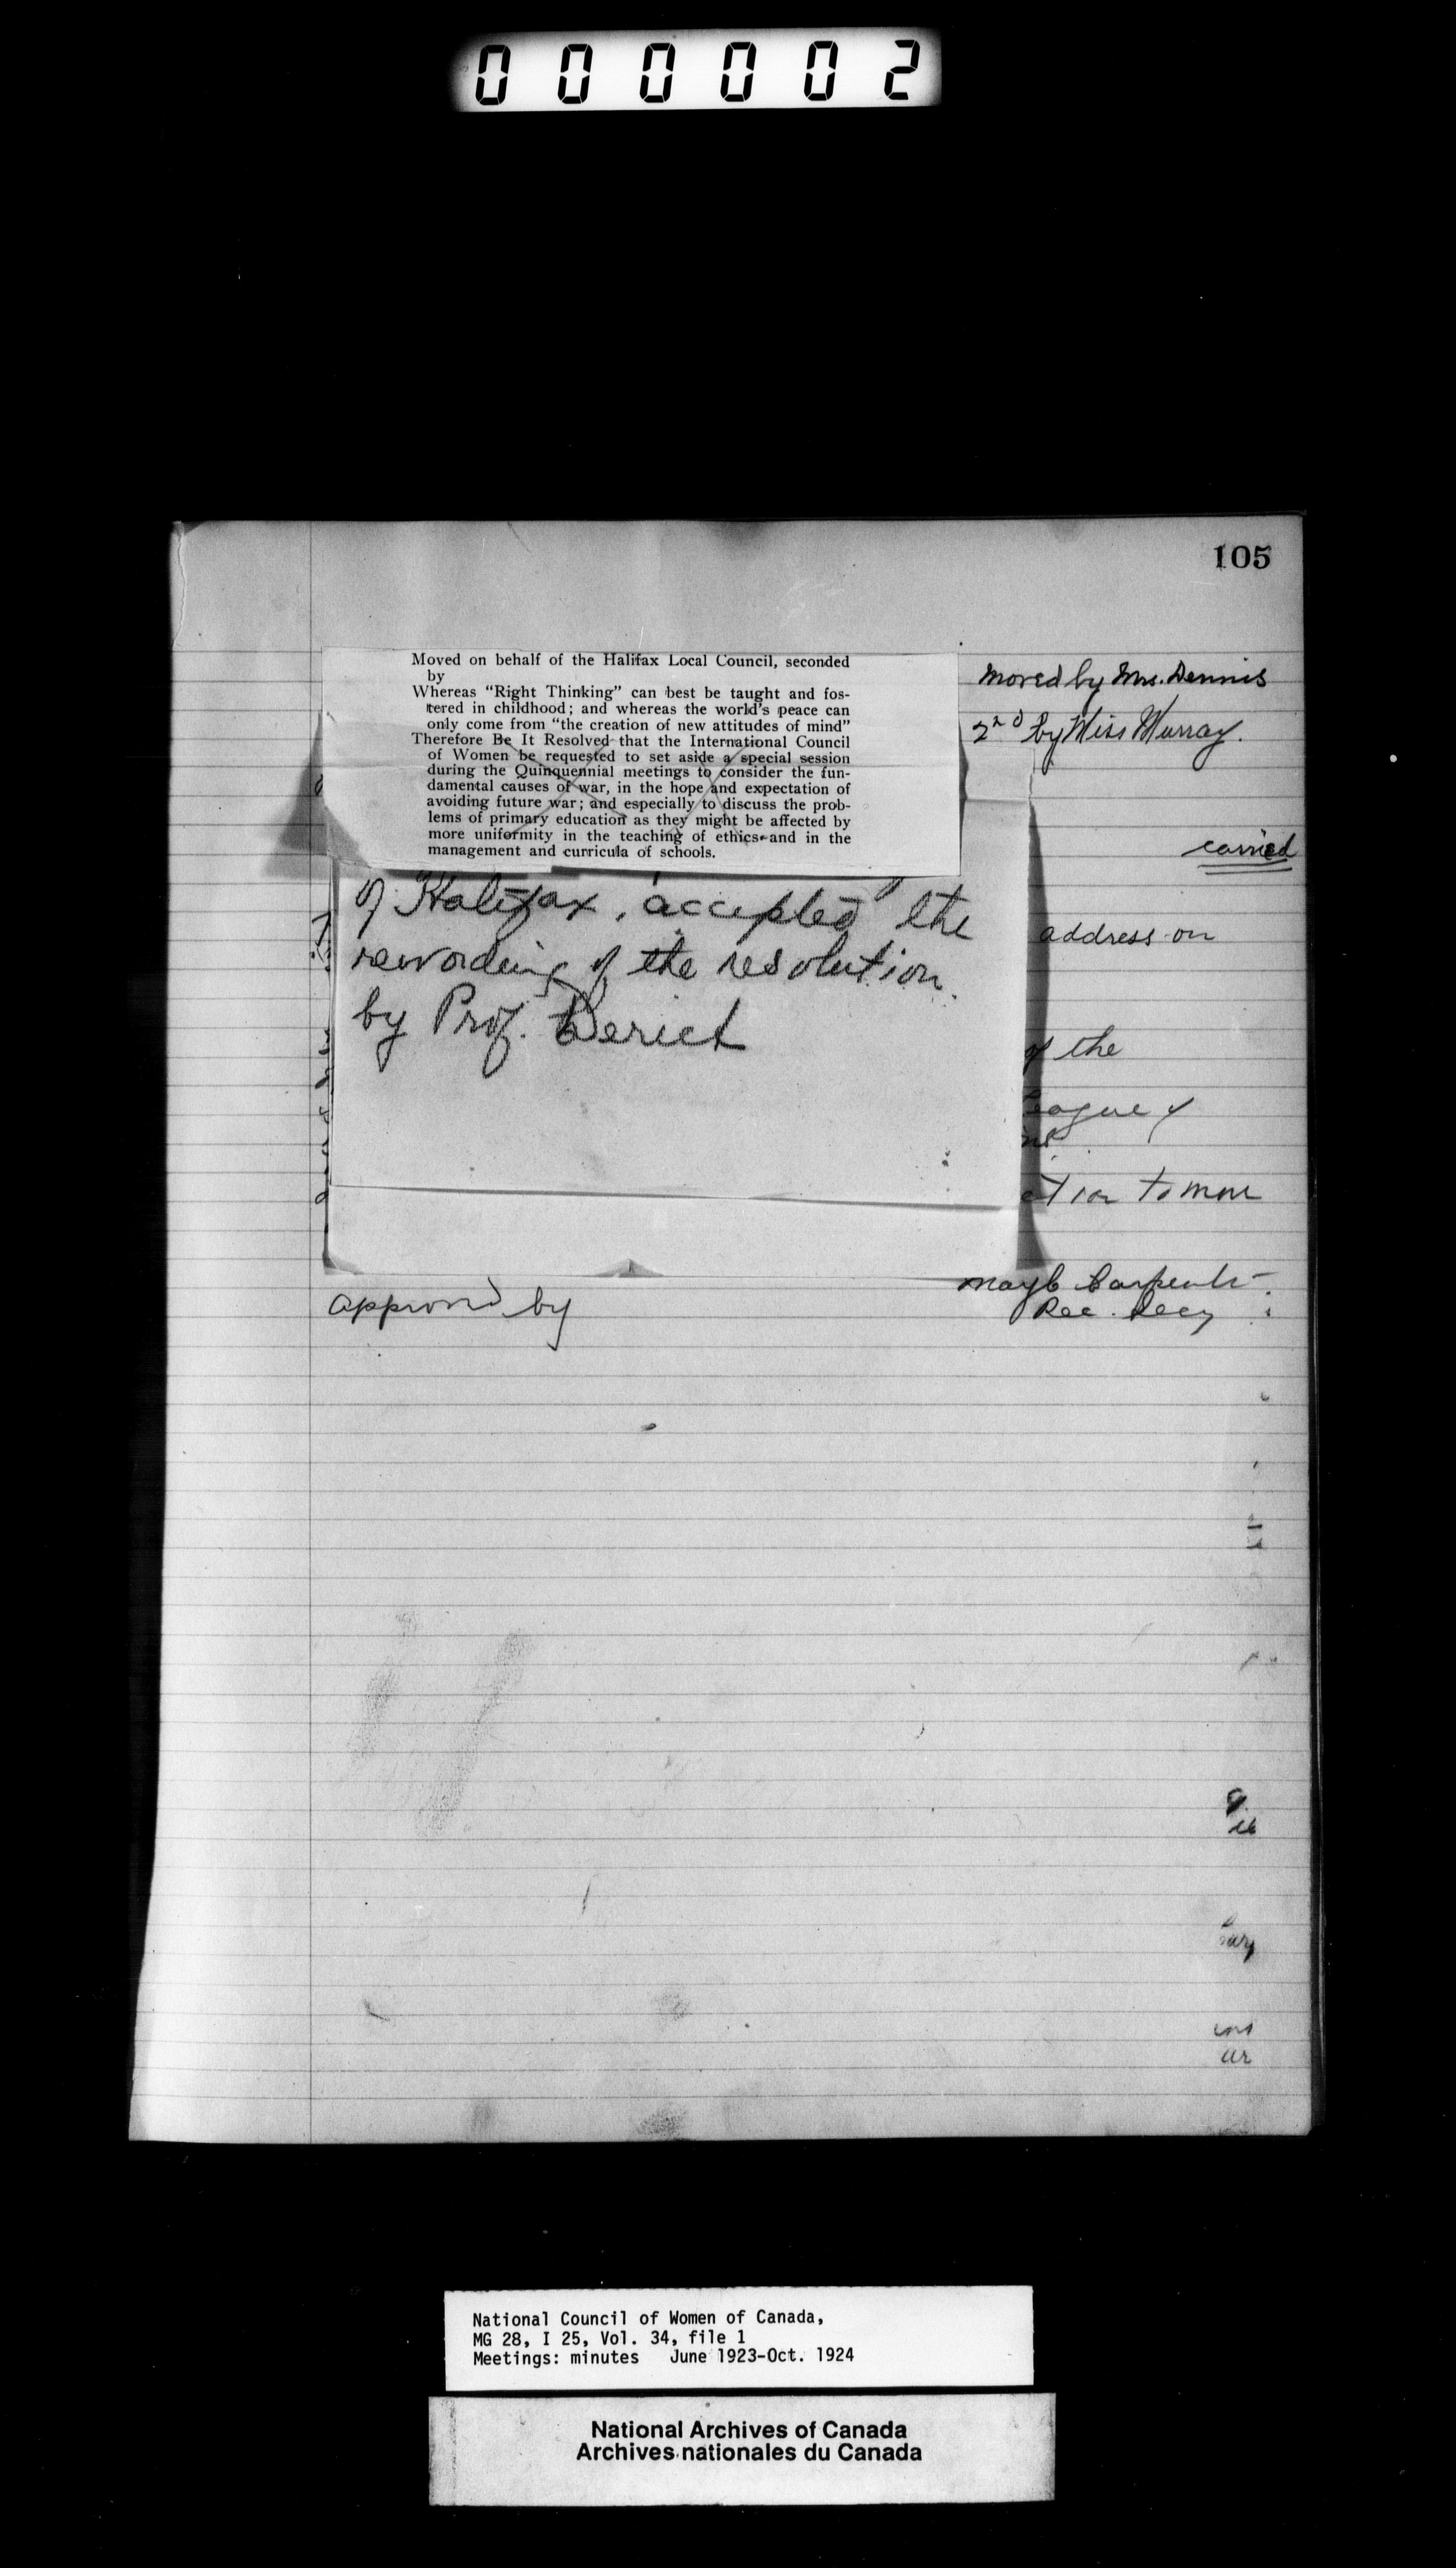 000002
105
Moved on behalf of the Halifax Local Council, seconded
by
Whereas "Right Thinking" can best be taught and fos-
tered in childhood; and whereas the world's peace can
only come from "the creation of new attitudes of mind"
Therefore Be It Resolved that the International Council
of Women be requested to set aside a special session
during the Quinquennial meetings to consider the fun-
damental causes of war, in the hope and expectation of
avoiding future war; and especially to discuss the prob-
lems of primary education as they might be affected by
more uniformity in the teaching of ethics and in the
management and curricula of schools.
Moved by Mrs. Dennis
2nd by Miss Murray.
carried
of Halifax, accepted the
rewording of the resolution.
by Prof.
address on
of the
eague of
to more
approved by
Carpenter
Rec. Secy
National Council of Women of Canada,
MG 28, I 25, Vol. 34, file 1
Meetings: minutes June 1923-Oct. 1924
National Archives of Canada
Archives nationales du Canada